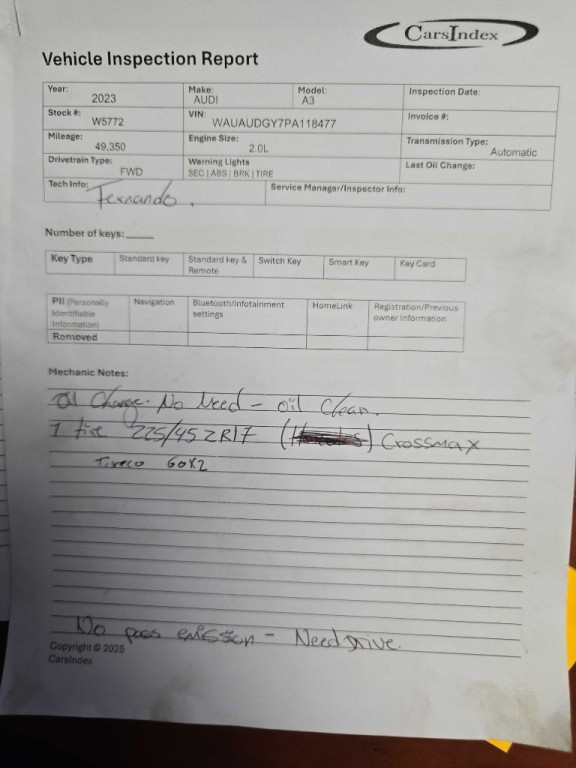 CarsIndex
Vehicle Inspection Report
Year: 2023 Make: AUDI Model: A3 Inspection Date:
Stock #: W5772 VIN: WAUAUDGY7PA118477 Invoice #:
Mileage: 49,350 Engine Size: 2.0L Transmission Type: Automatic
Drivetrain Type: FWD Warning Lights SEC | ABS | BRK | TIRE Last Oil Change:
Tech Info: Fernando. Service Manager/Inspector Info:
Number of keys:_____
Key Type Standard key Standard key & Remote Switch Key Smart Key Key Card
PII (Personally Identifiable Information) Navigation Bluetooth/Infotainment settings HomeLink Registration/Previous owner Information
Removed
Mechanic Notes:
Oil Change. No Need - oil Clean.
1 tire 225/45 ZR17 ( ) Crossmax
60x2
No pass emission - Need Drive.
Copyright © 2025
CarsIndex